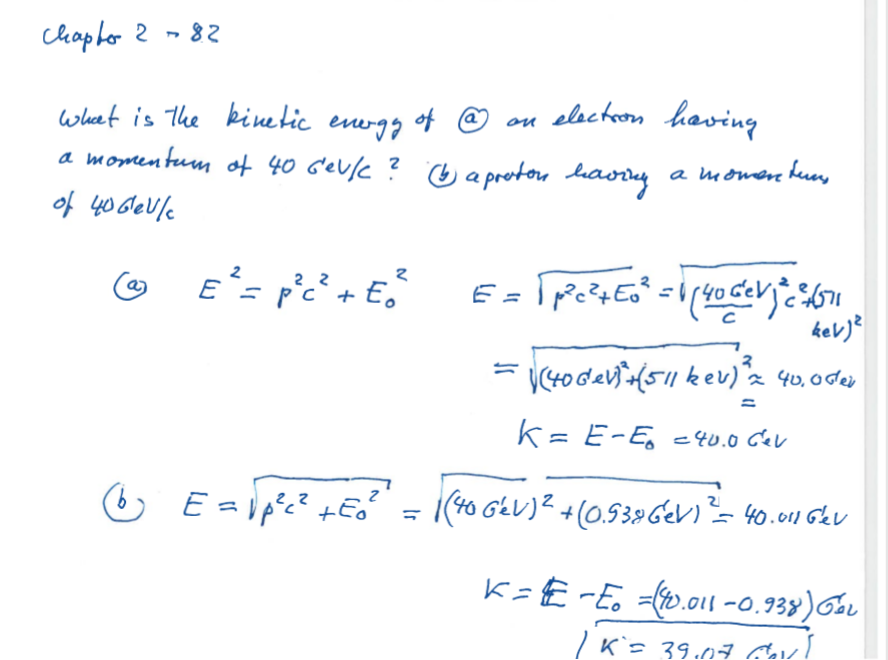 Chapter 2 - 82
What is the kinetic energy of (a) an electron having
a momentum of 40 GeV/c? (b) a proton having a momentum
of 40 GeV/c
(a) E² = p²c² + E₀² E = √(p²c² + E₀²) = √((40 GeV/c)²c² + (511 keV)²)
= √((40 GeV)² + (511 keV)²) ≈ 40.0 GeV
K = E - E₀ = 40.0 GeV
(b) E = √(p²c² + E₀²) = √((40 GeV)² + (0.938 GeV)²) = 40.011 GeV
K = E - E₀ = (40.011 - 0.938) GeV
K = 39.07 GeV